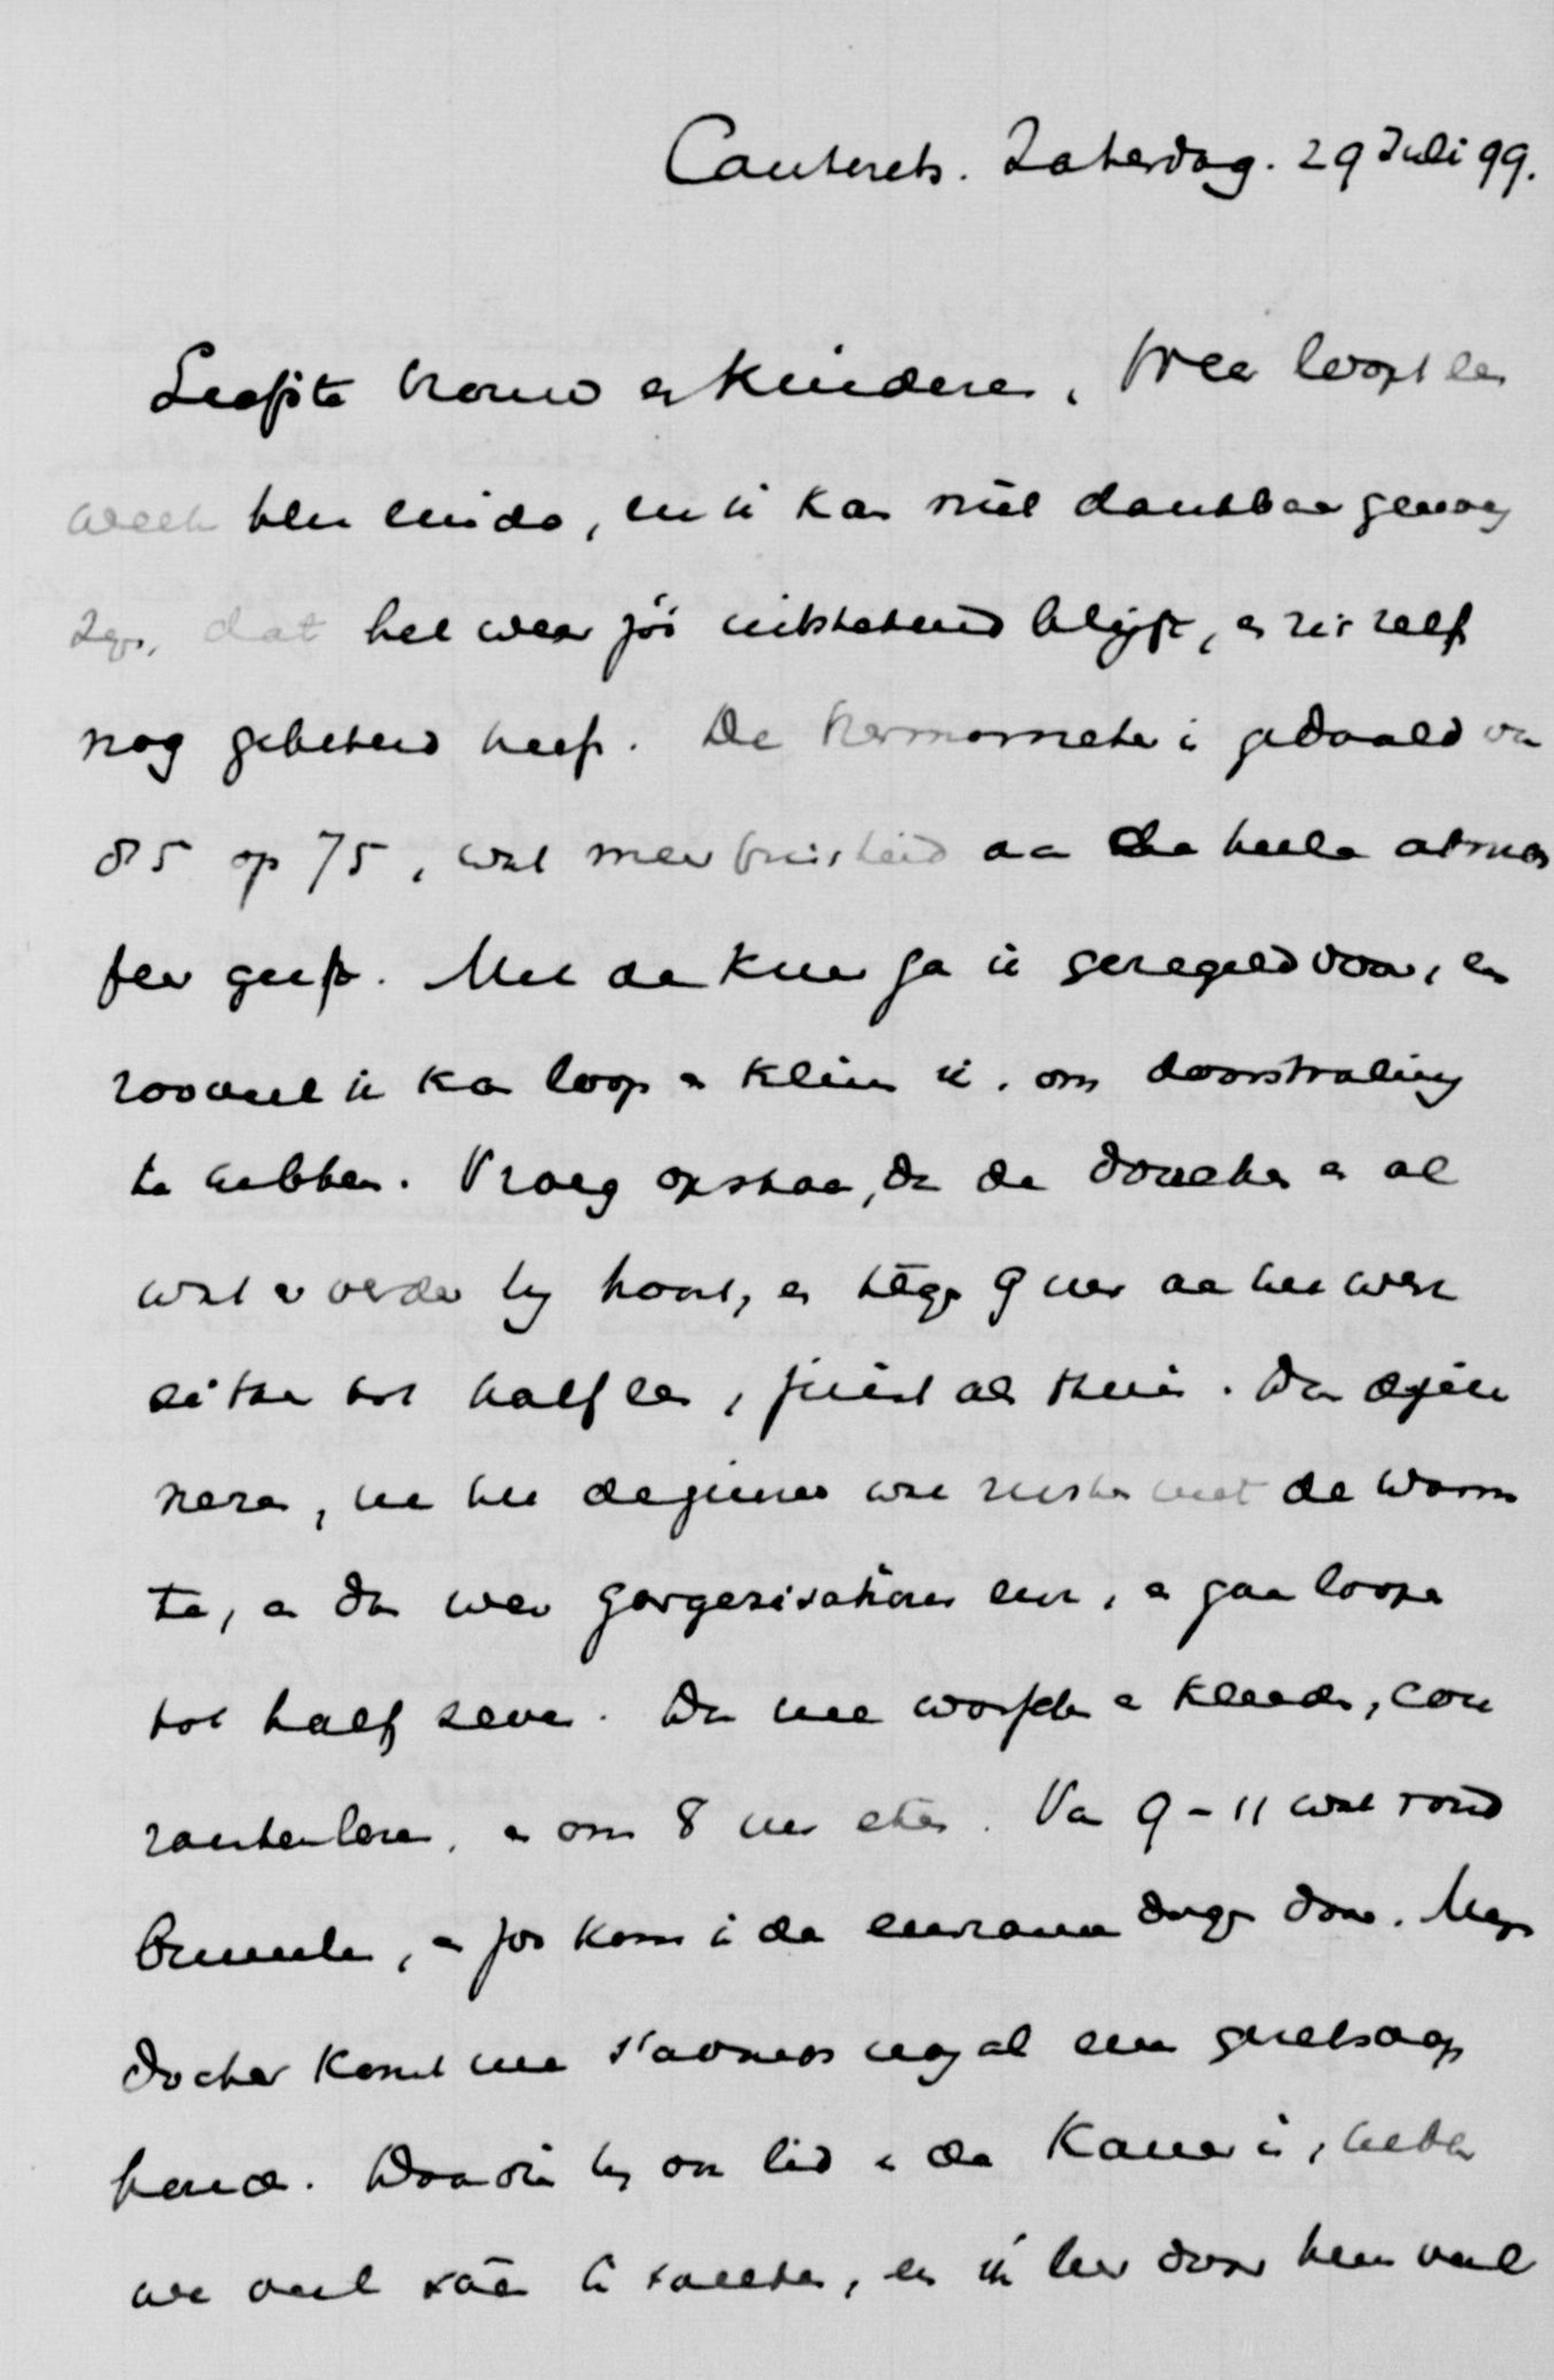 Cauterets. Zaterdag. 29 Juli 99.
Liefste vrouw en kinderen, Weer loopt een
week ten einde, en ik kan niet dankbaar genoeg
zijn, dat het weer zóó uitstekend blijft, en zich zelf
nog gebeterd heeft. De thermometer is gedaald van
85 op 75, wat meer frischheid aan de heele atmos
feer geeft. Met de kuur ga ik geregeld door, en
zooveel ik kan loop en klim ik, om doorstraling
te hebben. Vroeg opstaan, dan de douches en al
wat er verder bij hoort, en tegen 9 uur aan het werk
zitten tot half een, juist als thuis. Dan dejeu
neren, na het dejeuner wat rusten met de warm
te, en dan weer gargarisation enz, en gaan loopen
tot half zeven. Dan me wasschen en kleeden, cou
ranten lezen, en om 8 uur eten. Van 9 - 11 wat rond
, en zoo kom ik de eenzame dagen door. Mijn
dochter komt me 's avonds nog al een
houd. Daar hij oud lid in de Kamer is, hebben
we veel , en ik leer door hem veel